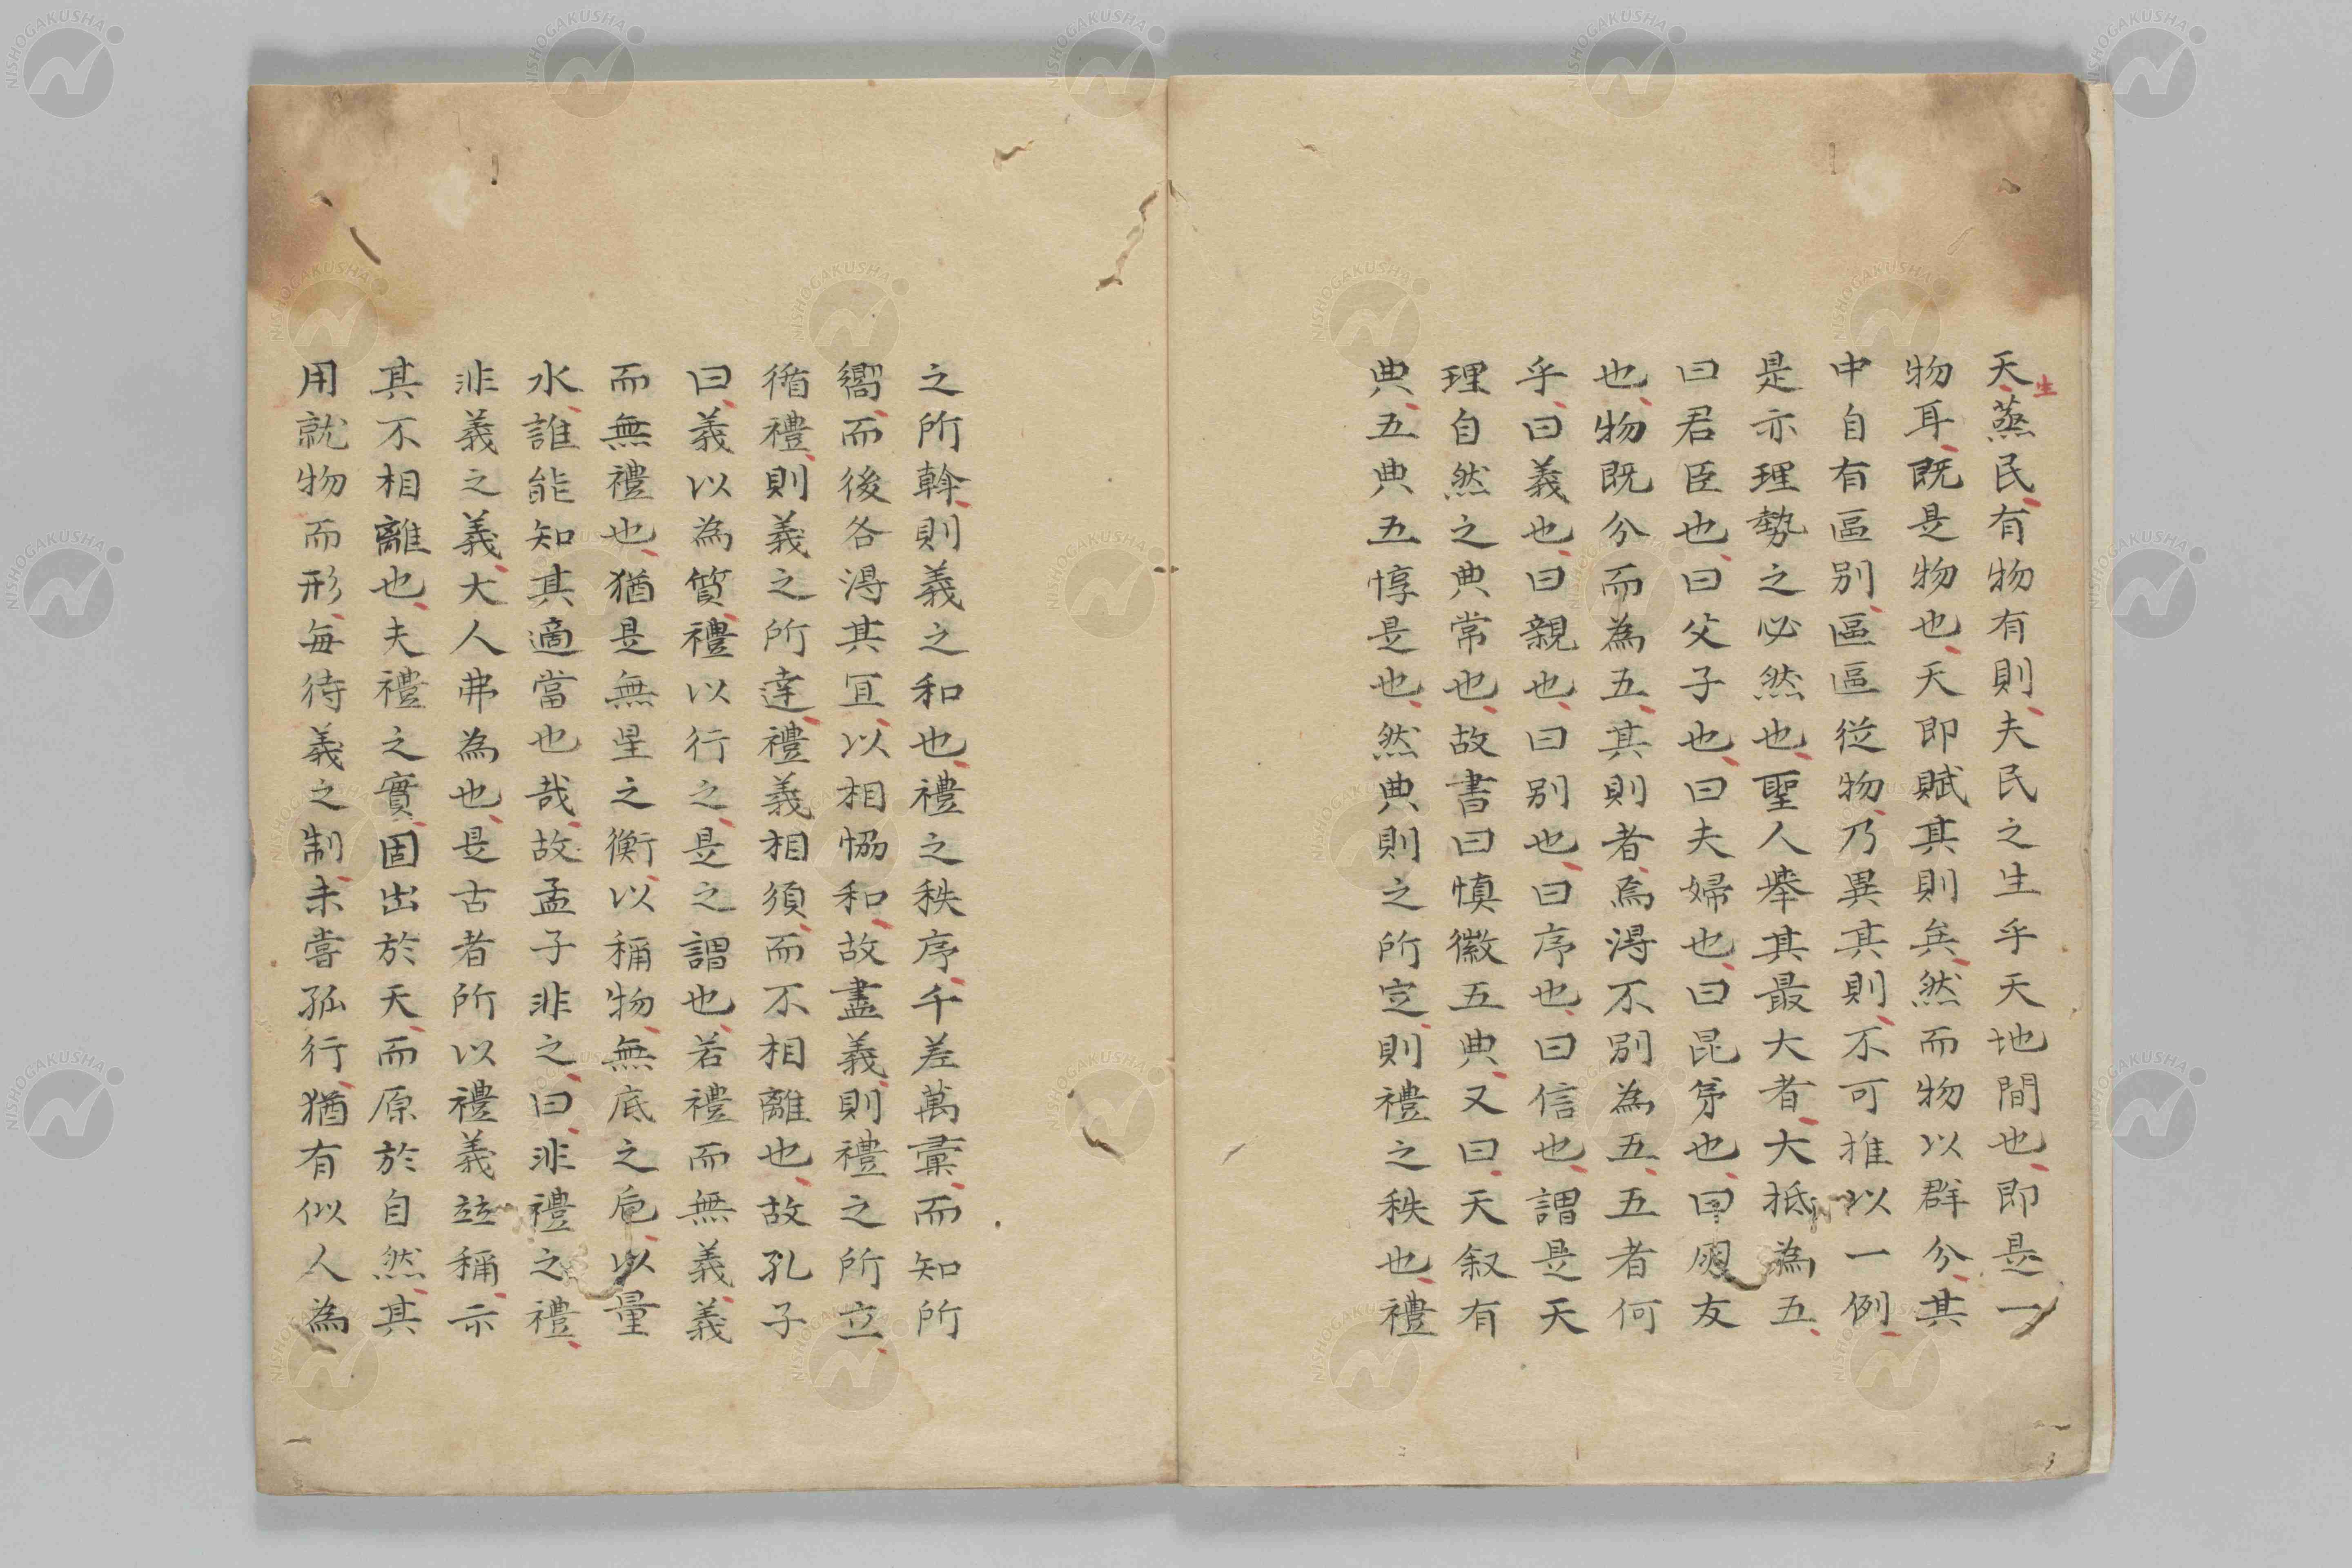 天生蒸民有物有則夫民之生乎天地間也即是一
物耳既是物也天即賦其則矣然而物以群分其
中自有區別區區從物乃異其則不可推以一例
是亦理勢之必然也聖人舉其最大者大抵為五
曰君臣也曰父子也曰夫婦也曰昆弟也曰朋友
也物既分而為五其則者焉淂不別為五五者何
乎曰義也曰親也曰別也曰序也曰信也謂是天
理自然之典常也故書曰慎徽五典又曰天叙有
典五典五惇是也然典則之所定則禮之秩也禮
之所斡則義之和也禮之秩序千差萬彙而知所
嚮而後各淂其宜以相恊和故盡義則禮之所立
循禮則義之所達禮義相須而不相離也故孔子
曰義以為質禮以行之是之謂也若禮而無義義
而無禮也猶是無星之衡以稱物無底之巵以量
水誰能知其適當也哉故孟子非之曰非禮之禮
非義之義大人弗為也是古者所以禮義並稱示
其不相離也夫禮之實固出於天而原於自然其
用就物而形每待義之制未嘗孤行猶有似人為
NISHOGAKUSHA